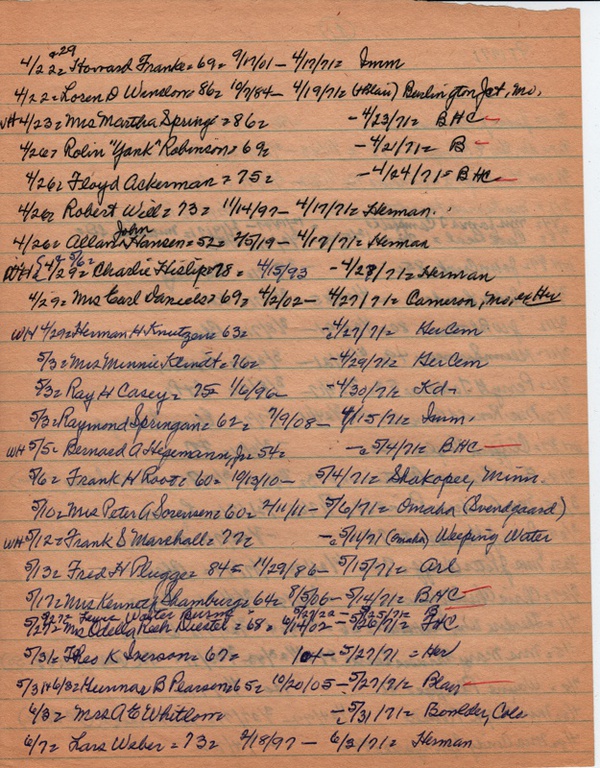 4/22 & 29 = Howard Franke = 69 = 9/17/01 - 4/17/71 = Imm
4/22 = Loren D Winslow = 86 = 10/7/84 - 4/19/71 = (+Blair) Burlington Jct, Mo.
WH 4/23 = Mrs Martha Spring = 86 = - 4/23/71 = BHC
4/26 = Rolin "Yank" Robinson = 69 = - 4/21/71 = B
4/26 = Floyd Ackerman = 75 = - 4/24/71 = BHC
4/26 = Robert Will = 73 = 11/14/97 - 4/17/71 = Herman
4/26 = Allan John Hansen = 52 = 2/5/19 - 4/17/71 = Herman
4/29 = & 5/6 = Charlie Hislip = 78 = 4/15/93 - 4/28/71 = Herman
4/29 = Mrs Earl Daniels = 69 = 4/2/02 - 4/27/71 = Cameron, Mo, ex Her
WH 4/29 = Herman H Knutzen = 63 = - 4/27/71 = GerCem
5/3 = Mrs Minnie Kerndt = 76 = - 4/29/71 = GerCem
5/3 = Ray H Casey = 75 = 1/6/96 - 4/30/71 = Kd
5/3 = Raymond Springan = 62 = 7/9/08 - 4/15/71 = Imm.
WH 5/5 = Bernard A Hegemann, Jr = 54 = - 5/4/71 = BHC
5/6 = Frank H Root = 60 = 10/13/10 - 5/4/71 = Shakopee, Minn.
5/10 = Mrs Peter A Sorensen = 60 = 2/11/11 - 5/6/71 = Omaha (Svendgaard)
WH 5/12 = Frank S Marshall = 77 = - 5/11/71 (Omaha) Weeping Water
5/13 = Fred H Plugge = 84 = 11/29/86 - 5/15/71 = Arl
5/17 = Mrs Kenneth Shamburg = 64 = 8/5/06 - 5/14/71 = BHC
5/27 = Walter B
5/27 = Mrs Odella Diestel = 68 = 6/14/02 - 5/26/71 = FHC
5/31 = Theo K Iverson = 67 = 104 - 5/27/71 = Her
5/31 & 6/3 = Gunnar B Pearson = 65 = 10/20/05 - 5/27/71 = Blair
6/3 = Mrs A E Whitlow - 5/31/71 = Boulder, Colo
6/7 = Lars Weber = 73 = 2/18/97 - 6/3/71 = Herman